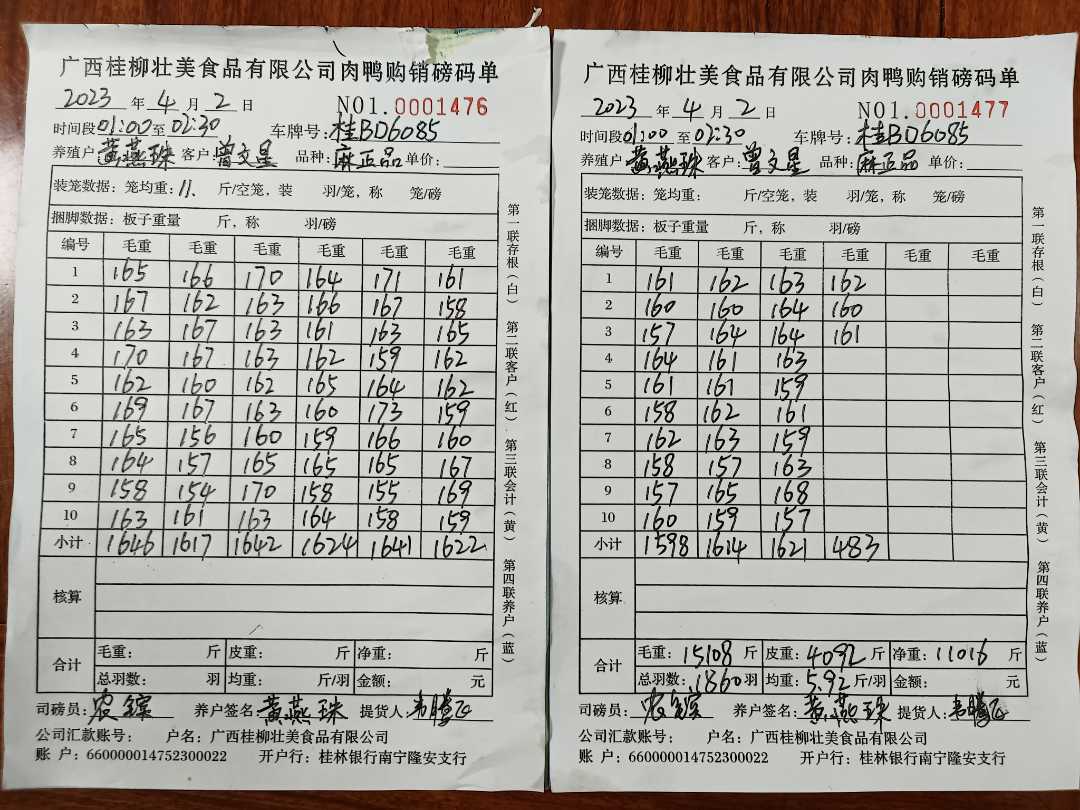 广西桂柳壮美食品有限公司肉鸭购销磅码单
2023 年 4 月 2 日 NO1.0001476
时间段 01:00 至 02:30 车牌号: 桂BD6085
养殖户 黄燕珠 客户: 曾文星 品种: 麻正品 单价:
装笼数据: 笼均重: 11. 斤/空笼, 装 羽/笼, 称 笼/磅
捆脚数据: 板子重量 斤, 称 羽/磅
编号 毛重 毛重 毛重 毛重 毛重 毛重
1 165 166 170 164 171 161
2 167 162 163 166 167 158
3 163 167 163 161 163 165
4 170 167 163 162 159 162
5 162 160 162 165 164 162
6 169 167 163 160 173 159
7 165 156 160 159 166 160
8 164 157 165 165 165 167
9 158 154 170 158 155 169
10 163 161 163 164 158 159
小计 1646 1617 1642 1624 1641 1622
核算
合计
毛重: 斤 皮重: 斤 净重: 斤
总羽数: 羽 均重: 斤/羽 金额: 元
司磅员: 养户签名: 黄燕珠 提货人: 韦腾飞
公司汇款账号: 户名: 广西桂柳壮美食品有限公司
账 户: 660000014752300022 开户行: 桂林银行南宁隆安支行
第一联存根(白) 第二联客户(红) 第三联会计(黄) 第四联养户(蓝)
广西桂柳壮美食品有限公司肉鸭购销磅码单
2023 年 4 月 2 日 NO1.0001477
时间段 01:00 至 02:30 车牌号: 桂BD6085
养殖户 黄燕珠 客户: 曾文星 品种: 麻正品 单价:
装笼数据: 笼均重: 斤/空笼, 装 羽/笼, 称 笼/磅
捆脚数据: 板子重量 斤, 称 羽/磅
编号 毛重 毛重 毛重 毛重 毛重 毛重
1 161 162 163 162
2 160 160 164 160
3 157 164 164 161
4 164 161 163
5 161 161 159
6 158 162 161
7 162 163 159
8 158 157 163
9 157 165 168
10 160 159 157
小计 1598 1614 1621 483
核算
合计
毛重: 15108 斤 皮重: 4092 斤 净重: 11016 斤
总羽数: 1860 羽 均重: 5.92 斤/羽 金额: 元
司磅员: 养户签名: 黄燕珠 提货人: 韦腾飞
公司汇款账号: 户名: 广西桂柳壮美食品有限公司
账 户: 660000014752300022 开户行: 桂林银行南宁隆安支行
第一联存根(白) 第二联客户(红) 第三联会计(黄) 第四联养户(蓝)